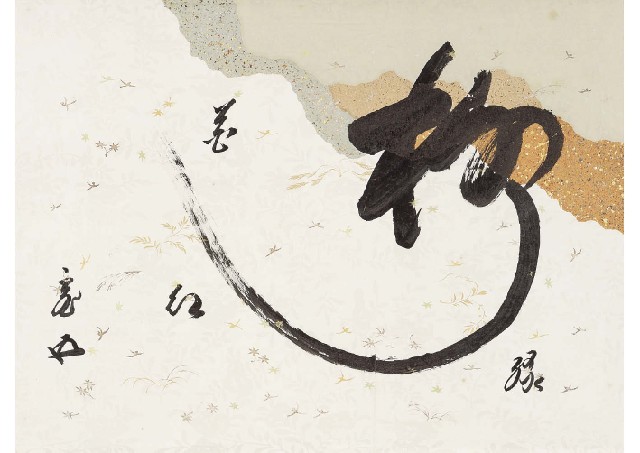 柳
緑
花
紅